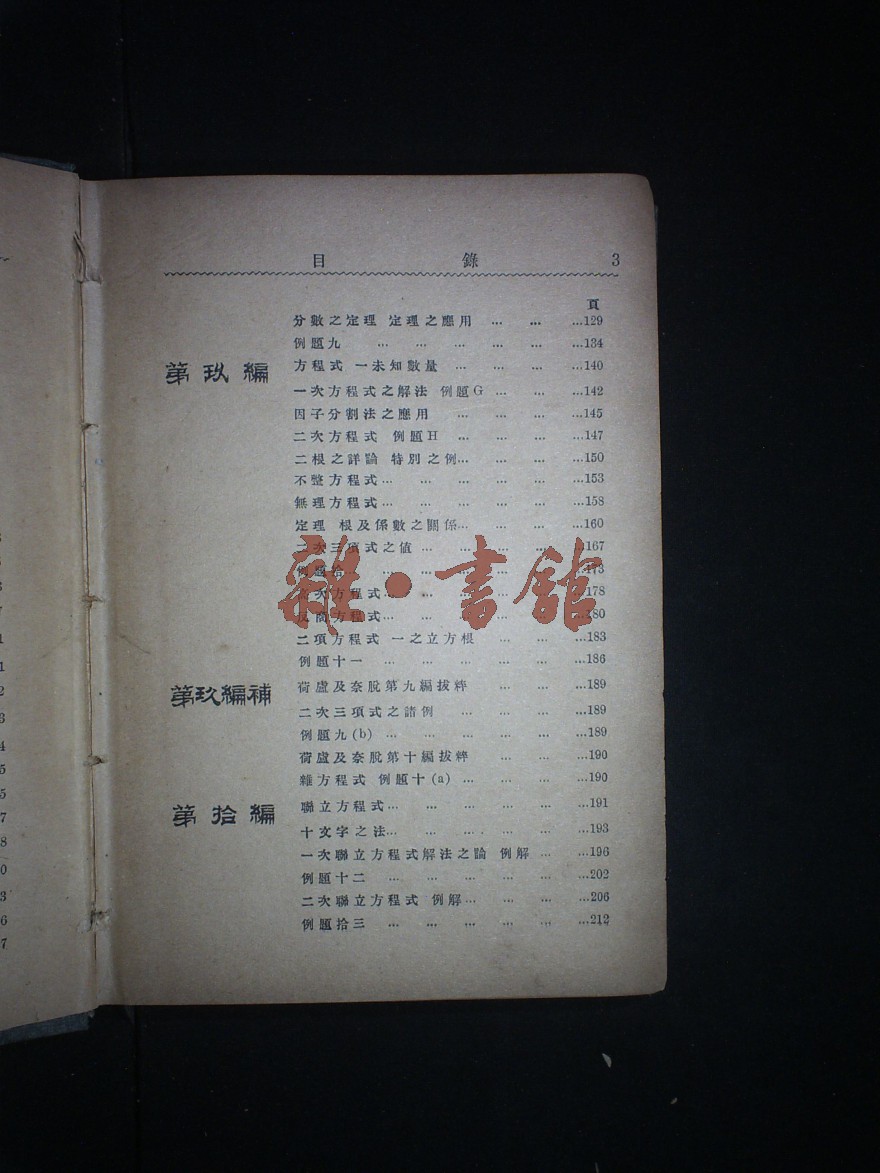 目 錄 3
頁
分數之定理 定理之應用 … … …129
例題九 … … … … … …134
第玖編 方程式 一未知數量 … … … …140
一次方程式之解法 例題G … … …142
因子分割法之應用 … … … …145
二次方程式 例題H … … … …147
二根之詳論 特別之例… … … …150
不整方程式… … … … … …153
無理方程式… … … … … …158
定理 根及係數之關係… … … …160
二次三項式之值 … … … … …167
例題拾 … … … … …173
次方程式… … … … … …178
反商方程式… … … … …180
二項方程式 一之立方根 … … …183
例題十一 … … … … … …186
第玖編補 荷盧及奈脫第九編拔粹 … … …189
二次三項式之諸例 … … … …189
例題九(b) … … … … … …189
荷盧及奈脫第十編拔粹 … … …190
雜方程式 例題十(a) … … … …190
第拾編 聯立方程式… … … … … …191
十文字之法… … … … … …193
一次聯立方程式解法之論 例解 … …196
例題十二 … … … … … …202
二次聯立方程式 例解… … … …206
例題拾三 … … … … … …212
雜·書館
3
6
3
7
1
1
2
3
4
5
5
7
8
0
3
6
7